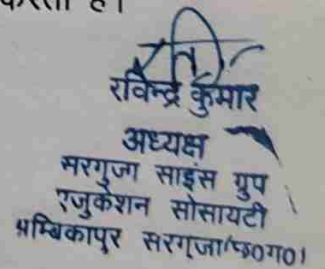 करता है।
रविन्द्र कुमार
अध्यक्ष
सरगुजा साइंस ग्रुप
एजुकेशन सोसायटी
अम्बिकापुर सरगुजा/छ०ग०।